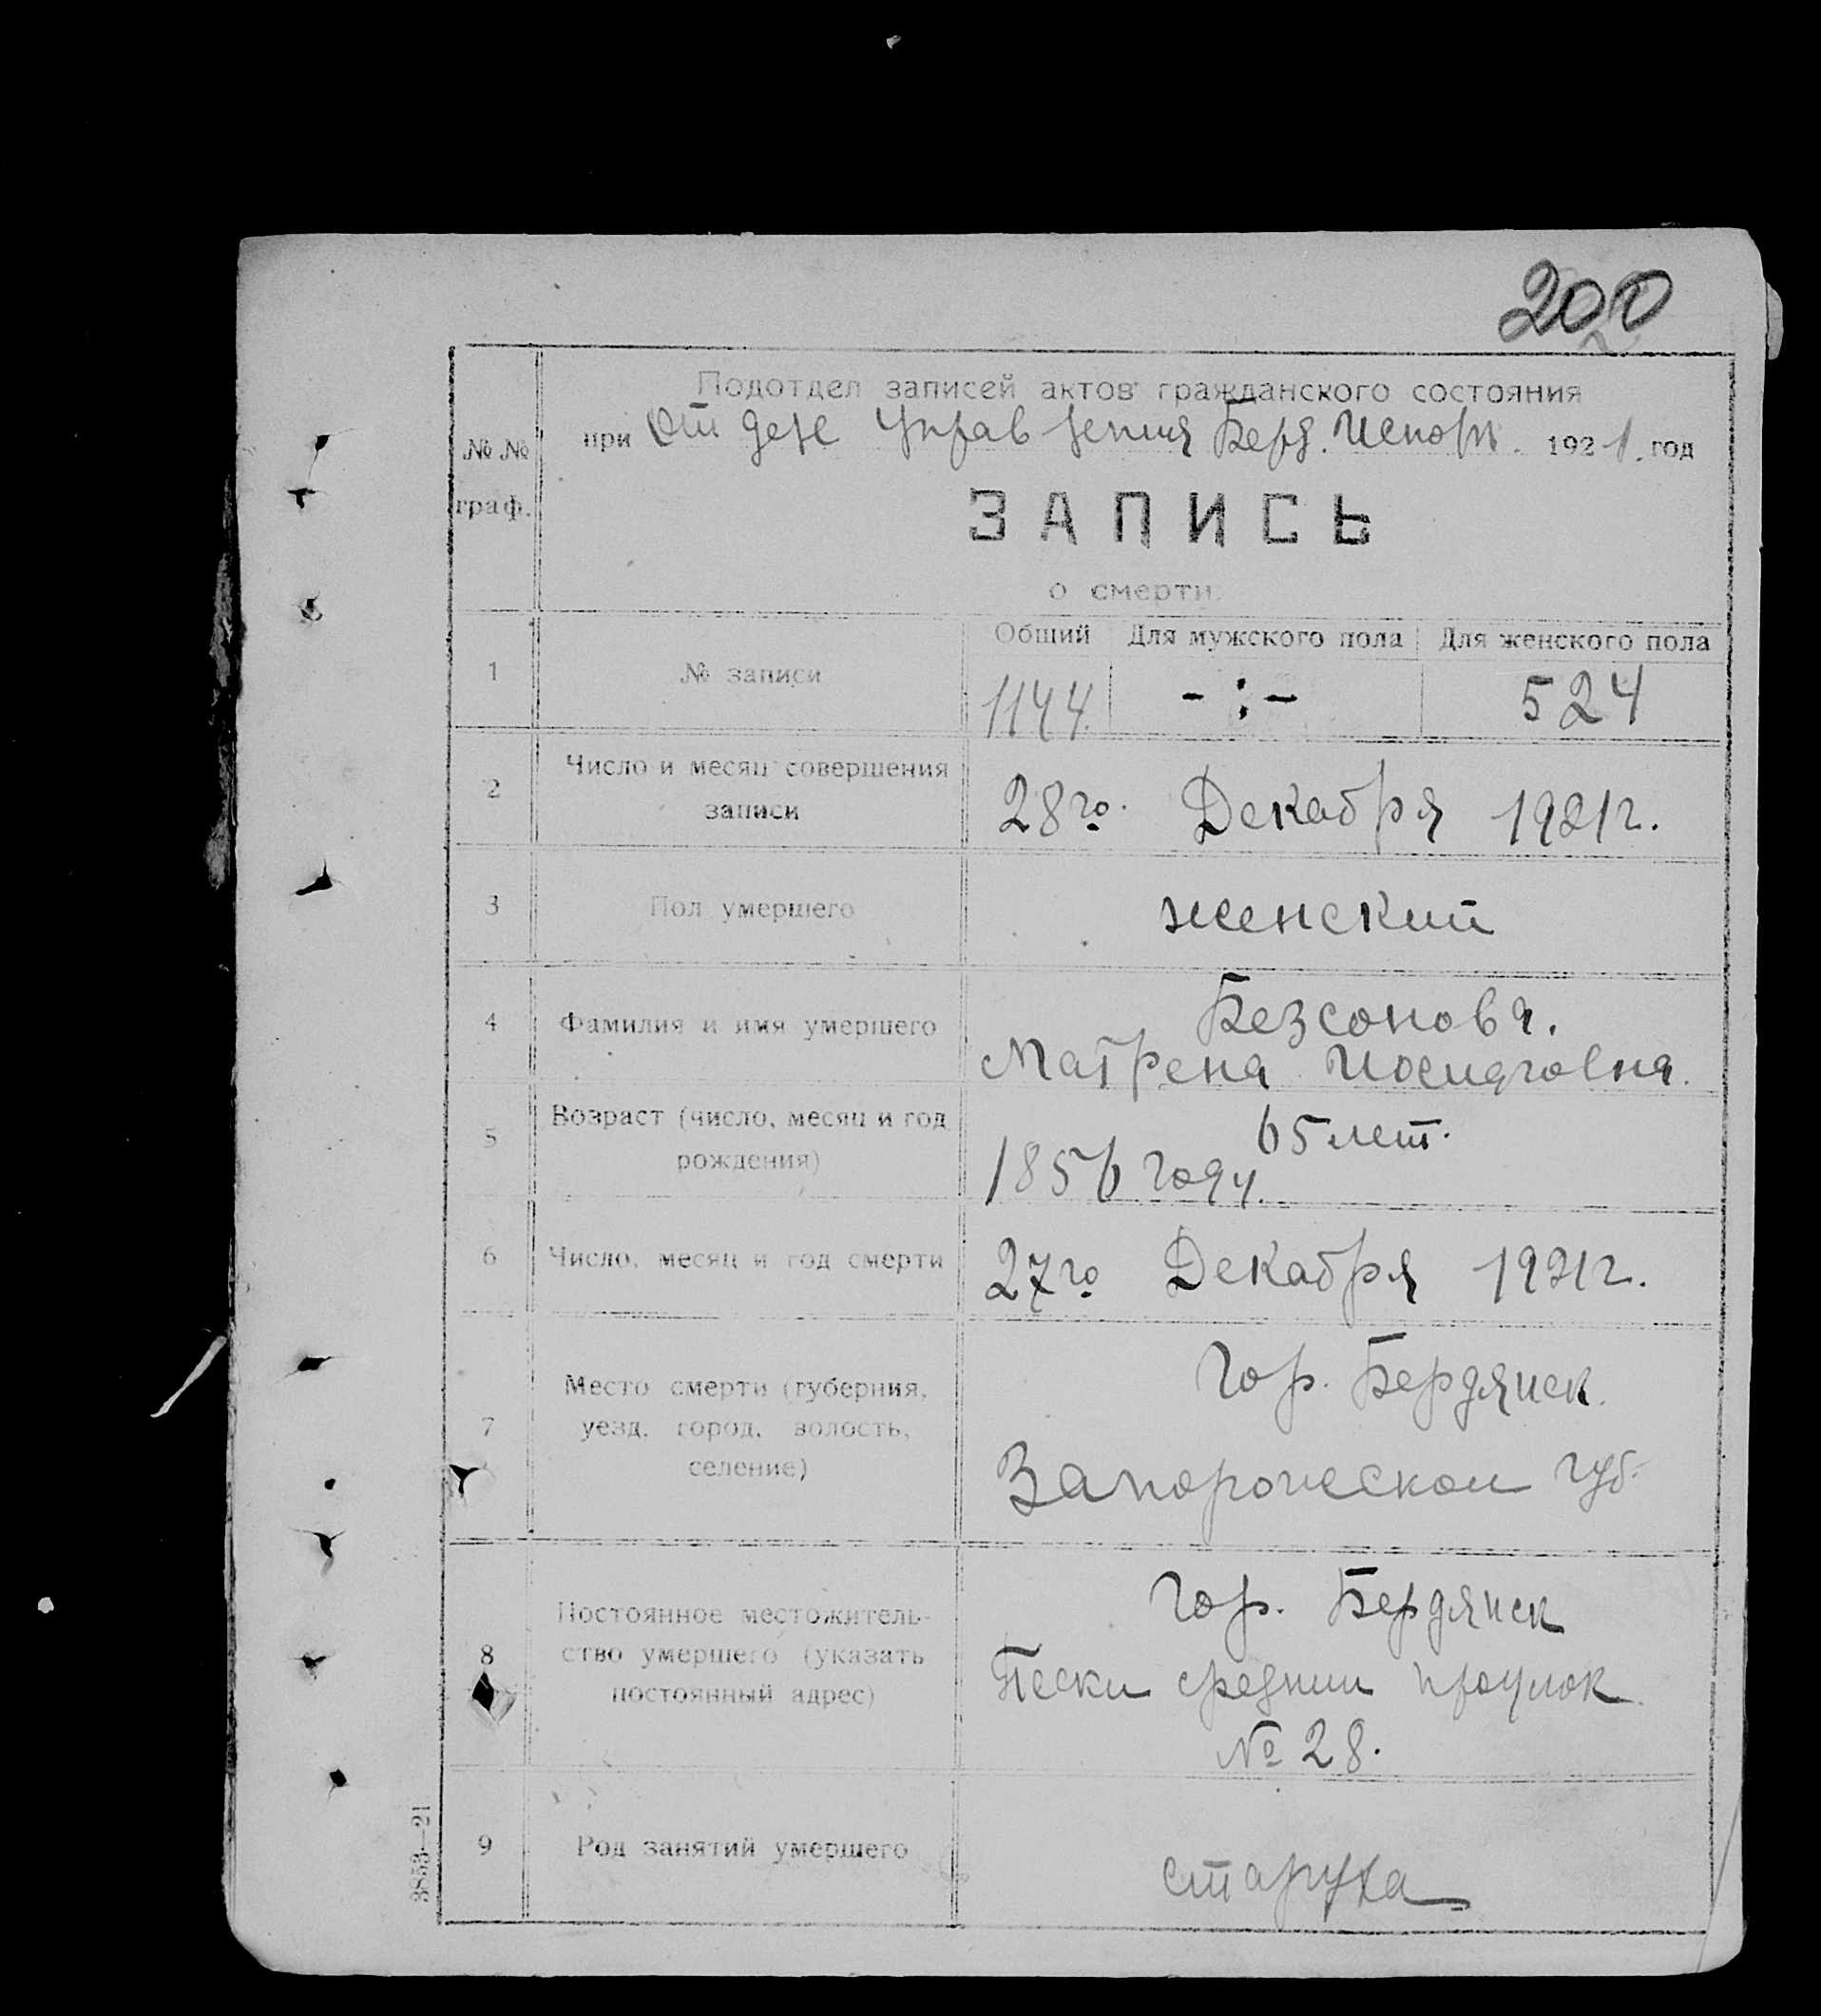 200
Подотдел записей актов гражданского состояния
при Отделе Управления Берд. Исполк. 1921. год
№ №
граф.
ЗАПИСЬ
о смерти.
Общий Для мужского пола Для женского пола
1 № записи 1144. - : - 524
2 Число и месяц совершения
записи
28го. Декабря 1921г.
3 Пол умершего женский
4 Фамилия и имя умершего
Безсонова.
Матрена
5 Возраст (число, месяц и год
рождения)
65 лет.
1856 году.
6 Число, месяц и год смерти 27го Декабря 1921г.
7 Место смерти (губерния,
уезд, город, волость,
селение)
Гор. Бердянск.
Запорожской губ.
8 Постоянное местожитель-
ство умершего (указать
постоянный адрес)
Гор. Бердянск
Пески средний проулок.
№ 28.
9 Род занятий умершего старуха
3853—21